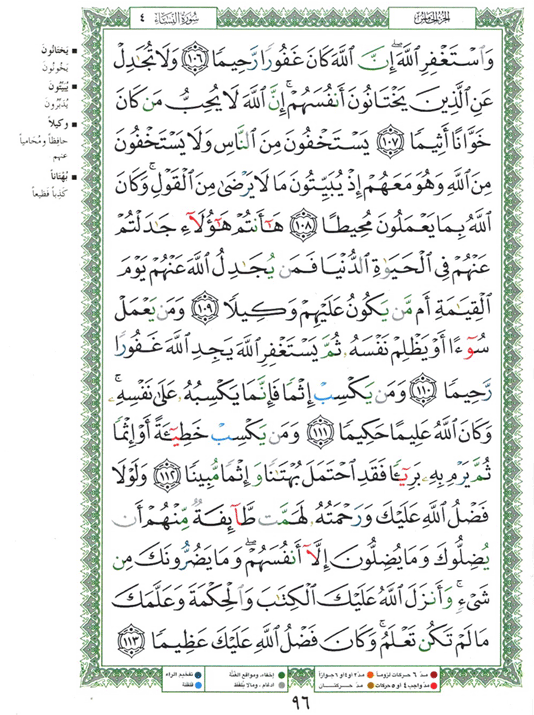 الجزء الخامس
سُورَةُ النِّسَاءِ ٤
وَٱسْتَغْفِرِ ٱللَّهَ ۖ إِنَّ ٱللَّهَ كَانَ غَفُورًا رَّحِيمًا ١٠٦ وَلَا تُجَٰدِلْ
عَنِ ٱلَّذِينَ يَخْتَانُونَ أَنفُسَهُمْ ۚ إِنَّ ٱللَّهَ لَا يُحِبُّ مَن كَانَ
خَوَّانًا أَثِيمًا ١٠٧ يَسْتَخْفُونَ مِنَ ٱلنَّاسِ وَلَا يَسْتَخْفُونَ
مِنَ ٱللَّهِ وَهُوَ مَعَهُمْ إِذْ يُبَيِّتُونَ مَا لَا يَرْضَىٰ مِنَ ٱلْقَوْلِ ۚ وَكَانَ
ٱللَّهُ بِمَا يَعْمَلُونَ مُحِيطًا ١٠٨ هَٰٓأَنتُمْ هَٰٓؤُلَآءِ جَٰدَلْتُمْ
عَنْهُمْ فِى ٱلْحَيَوٰةِ ٱلدُّنْيَا فَمَن يُجَٰدِلُ ٱللَّهَ عَنْهُمْ يَوْمَ
ٱلْقِيَٰمَةِ أَم مَّن يَكُونُ عَلَيْهِمْ وَكِيلًا ١٠٩ وَمَن يَعْمَلْ
سُوٓءًا أَوْ يَظْلِمْ نَفْسَهُۥ ثُمَّ يَسْتَغْفِرِ ٱللَّهَ يَجِدِ ٱللَّهَ غَفُورًا
رَّحِيمًا ١١٠ وَمَن يَكْسِبْ إِثْمًا فَإِنَّمَا يَكْسِبُهُۥ عَلَىٰ نَفْسِهِۦ ۚ
وَكَانَ ٱللَّهُ عَلِيمًا حَكِيمًا ١١١ وَمَن يَكْسِبْ خَطِيٓـَٔةً أَوْ إِثْمًا
ثُمَّ يَرْمِ بِهِۦ بَرِيٓـًٔا فَقَدِ ٱحْتَمَلَ بُهْتَٰنًا وَإِثْمًا مُّبِينًا ١١٢ وَلَوْلَا
فَضْلُ ٱللَّهِ عَلَيْكَ وَرَحْمَتُهُۥ لَهَمَّت طَّآئِفَةٌ مِّنْهُمْ أَن
يُضِلُّوكَ وَمَا يُضِلُّونَ إِلَّآ أَنفُسَهُمْ ۖ وَمَا يَضُرُّونَكَ مِن
شَىْءٍ ۚ وَأَنزَلَ ٱللَّهُ عَلَيْكَ ٱلْكِتَٰبَ وَٱلْحِكْمَةَ وَعَلَّمَكَ
مَا لَمْ تَكُن تَعْلَمُ ۚ وَكَانَ فَضْلُ ٱللَّهِ عَلَيْكَ عَظِيمًا ١١٣
يَخْتَانُونَ
يَخُونُونَ
يُبَيِّتُونَ
يُدَبِّرُونَ
وكيلاً
حافظاً ومُحامياً
عنهم
بُهْتَاناً
كَذِباً فظيعاً
مدّ ٦ حركات لزوماً مدّ ٢ أو ٤ أو ٦ جوازاً
مدّ واجب ٤ أو ٥ حركات مدّ حركتان
إخفاء، ومواقع الغُنَّة
ادغام، وما لا يُلفَظ
تفخيم الراء
قلقلة
٩٦